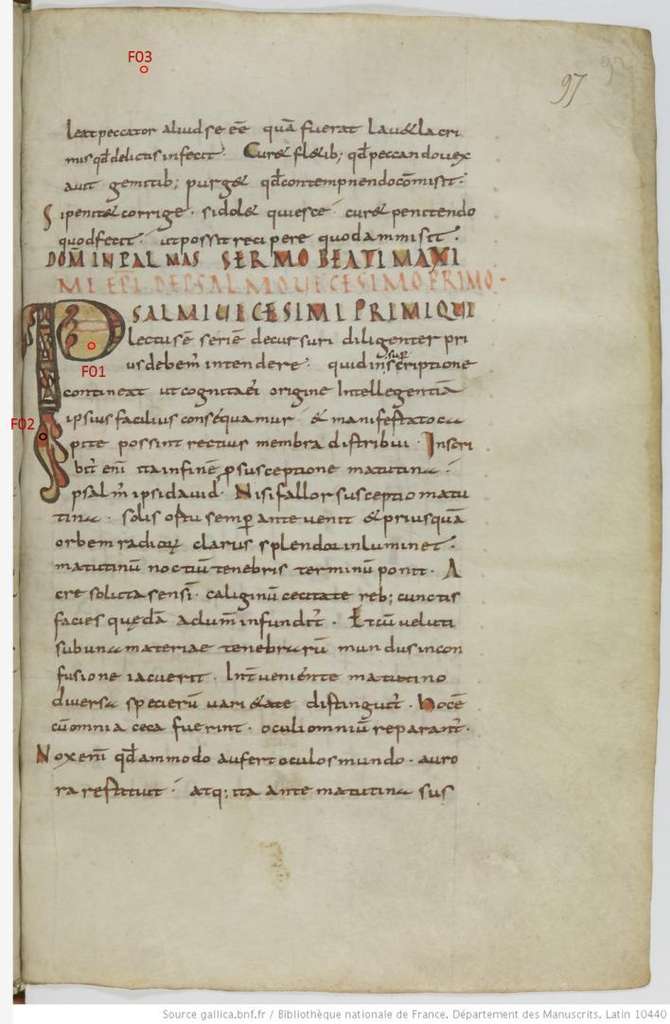 F03
97
leat peccator aliud se eē quā fuerat Lauet lacri
mis qđ delictis infecit. Curet fletib; qđ peccando uex
auit gemitib; purget qđ contempnendo cōmisit.
Si penitet corrige. si dolet quiesce. curet penitendo
quod fecit. ut possit recipere quod ammisit.
DOM IN PALMAS SERMO BEATI MAXI
MI EPI DE PSALMO UICESIMO PRIMO
PSALMI UICESIMI PRIMI QUI
lectus ē seriē decursuri diligenter pri
F01
us debem̄ intendere. quid sup inscriptione
contineat ut cognita ei origine Intellegentia
ipsius facilius consequamur. et manifestato ca
F02
pite possint rectius membra distribui. Inscri
bit eni ita in finē p susceptione matutina.
psalm̄ ipsi dauid. Nisi fallor susceptio matu
tina. solis ortū semp ante uenit et priusquā
orbem radioꝝ clarus splendor inluminet.
matutinū noctiū tenebris terminū ponit. A
cre solicita sensi. caliginū cecitate reb; cunctis
facies quędā adum infundit. Et cū veluti
sub una materiae tenebrarū mundus incon
fusione iacuerit. Int ueniente matutino
diversa specierū uarietate distinguit. hoc ē
cū omnia ceca fuerint. oculi omniū reparant.
Nox enī qđammodo aufert oculos mundo. auro
ra restituit. atq; ita ante matutina sus
Source gallica.bnf.fr / Bibliothèque nationale de France. Département des Manuscrits. Latin 10440